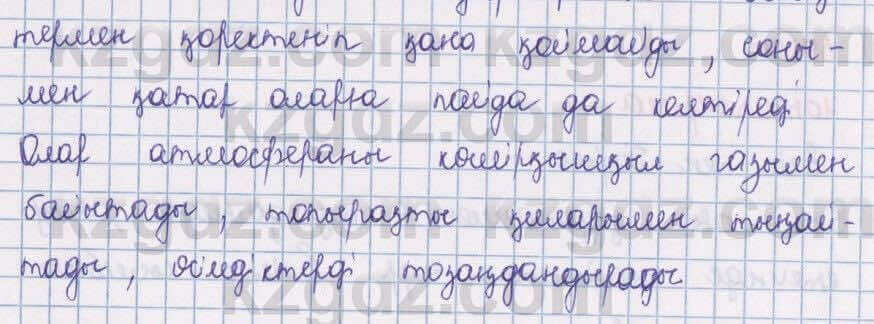 термен қоректеніп қана қоймайды, соны-
мен қатар оларға пайда да келтіреді.
Олар атмосфераны көмірқышқыл газымен
байытады, топырақты қиларымен тыңай-
тады, өсімдіктерді тозаңдандырады